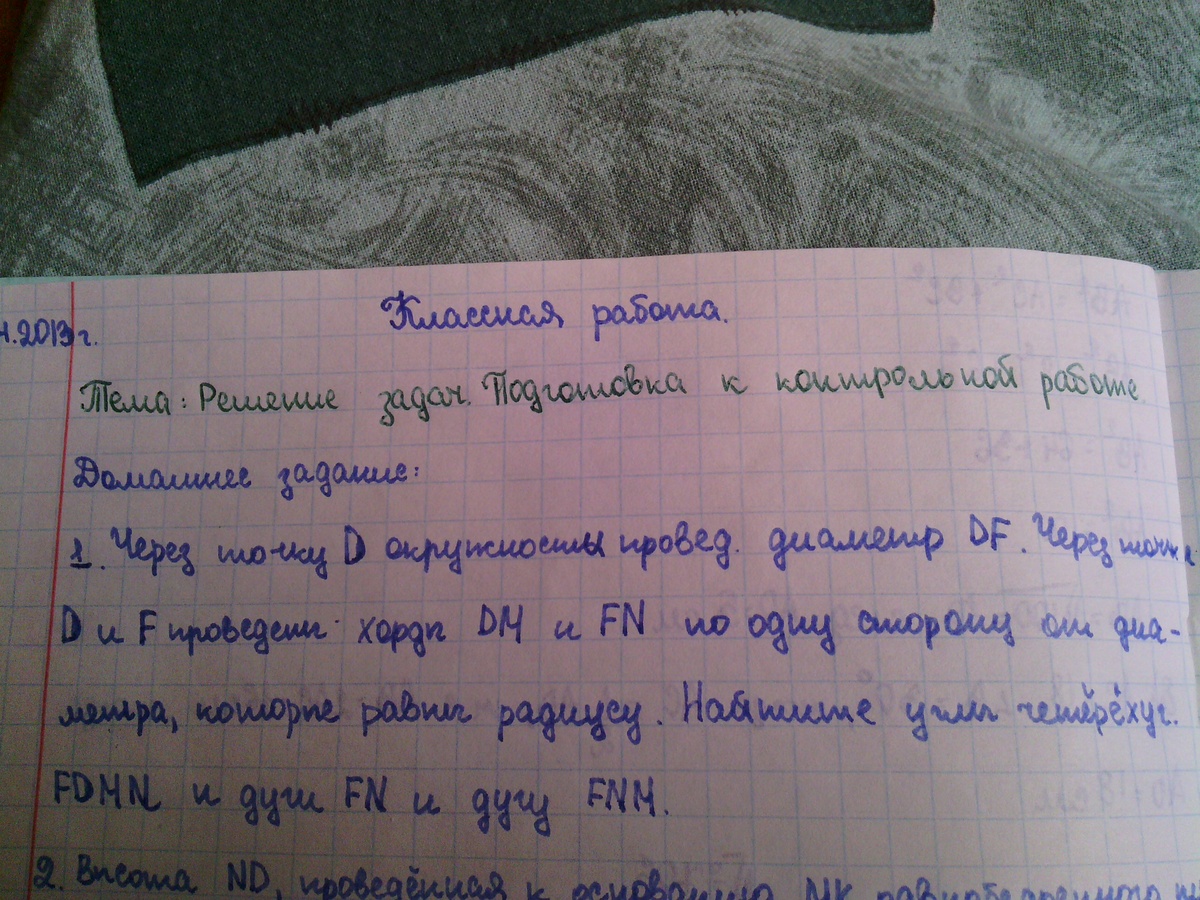 .2013г.
Классная работа.
Тема: Решение задач. Подготовка к контрольной работе
Домашнее задание:
1. Через точку D окружности провед. диаметр DF. Через
D и F проведены хорды DM и FN по одну сторону от диа-
метра, которые равны радиусу. Найтите углы четырёхуг.
FDMN и дуги FN и дугу FNM.
2. Высота ND, проведённая к основанию MK равнобедренного